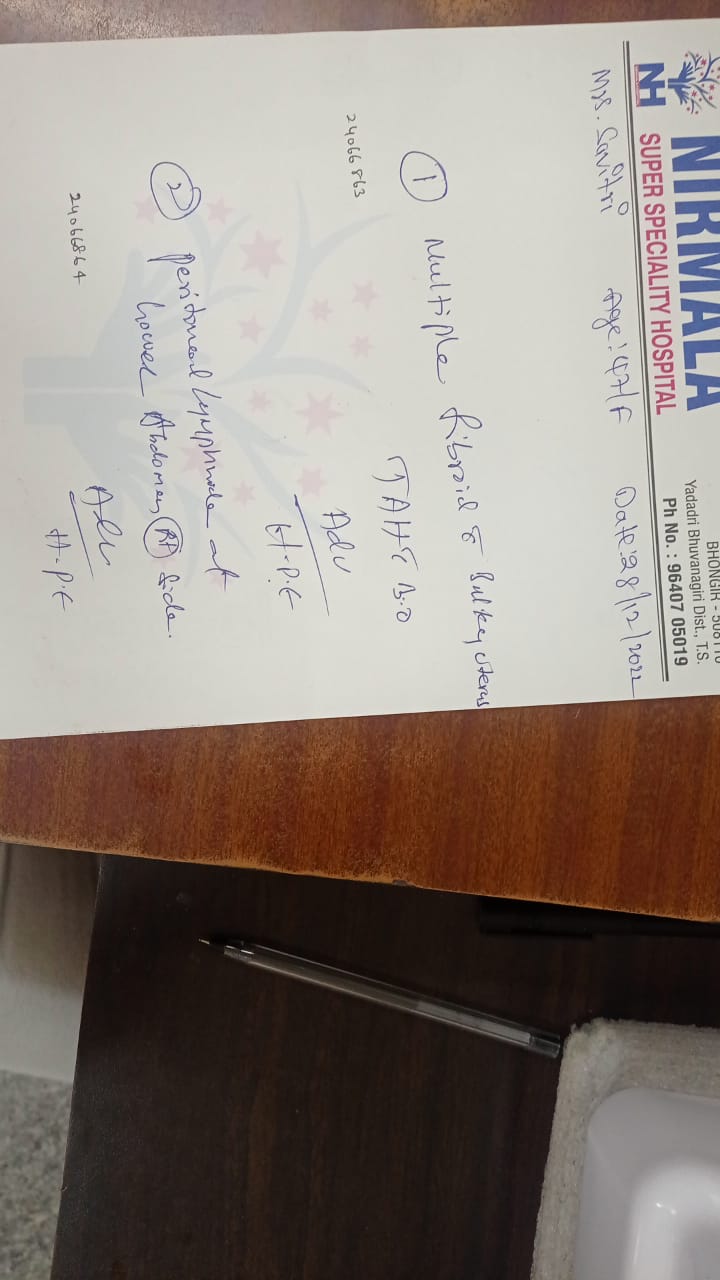 NIRMALA
NH SUPER SPECIALITY HOSPITAL
BHONGIR - 508116
Yadadri Bhuvanagiri Dist., T.S.
Ph No. : 96407 05019
Mrs. Savitri Age: 47/F Date: 28/12/2022
① Multiple fibroid & Bulkey uterus
TAH & B.O
24066863
Adv
H.P.E
② Peritoneal lymphnode at
lower Abdomen Rt side.
24066864
Adv
H.P.E